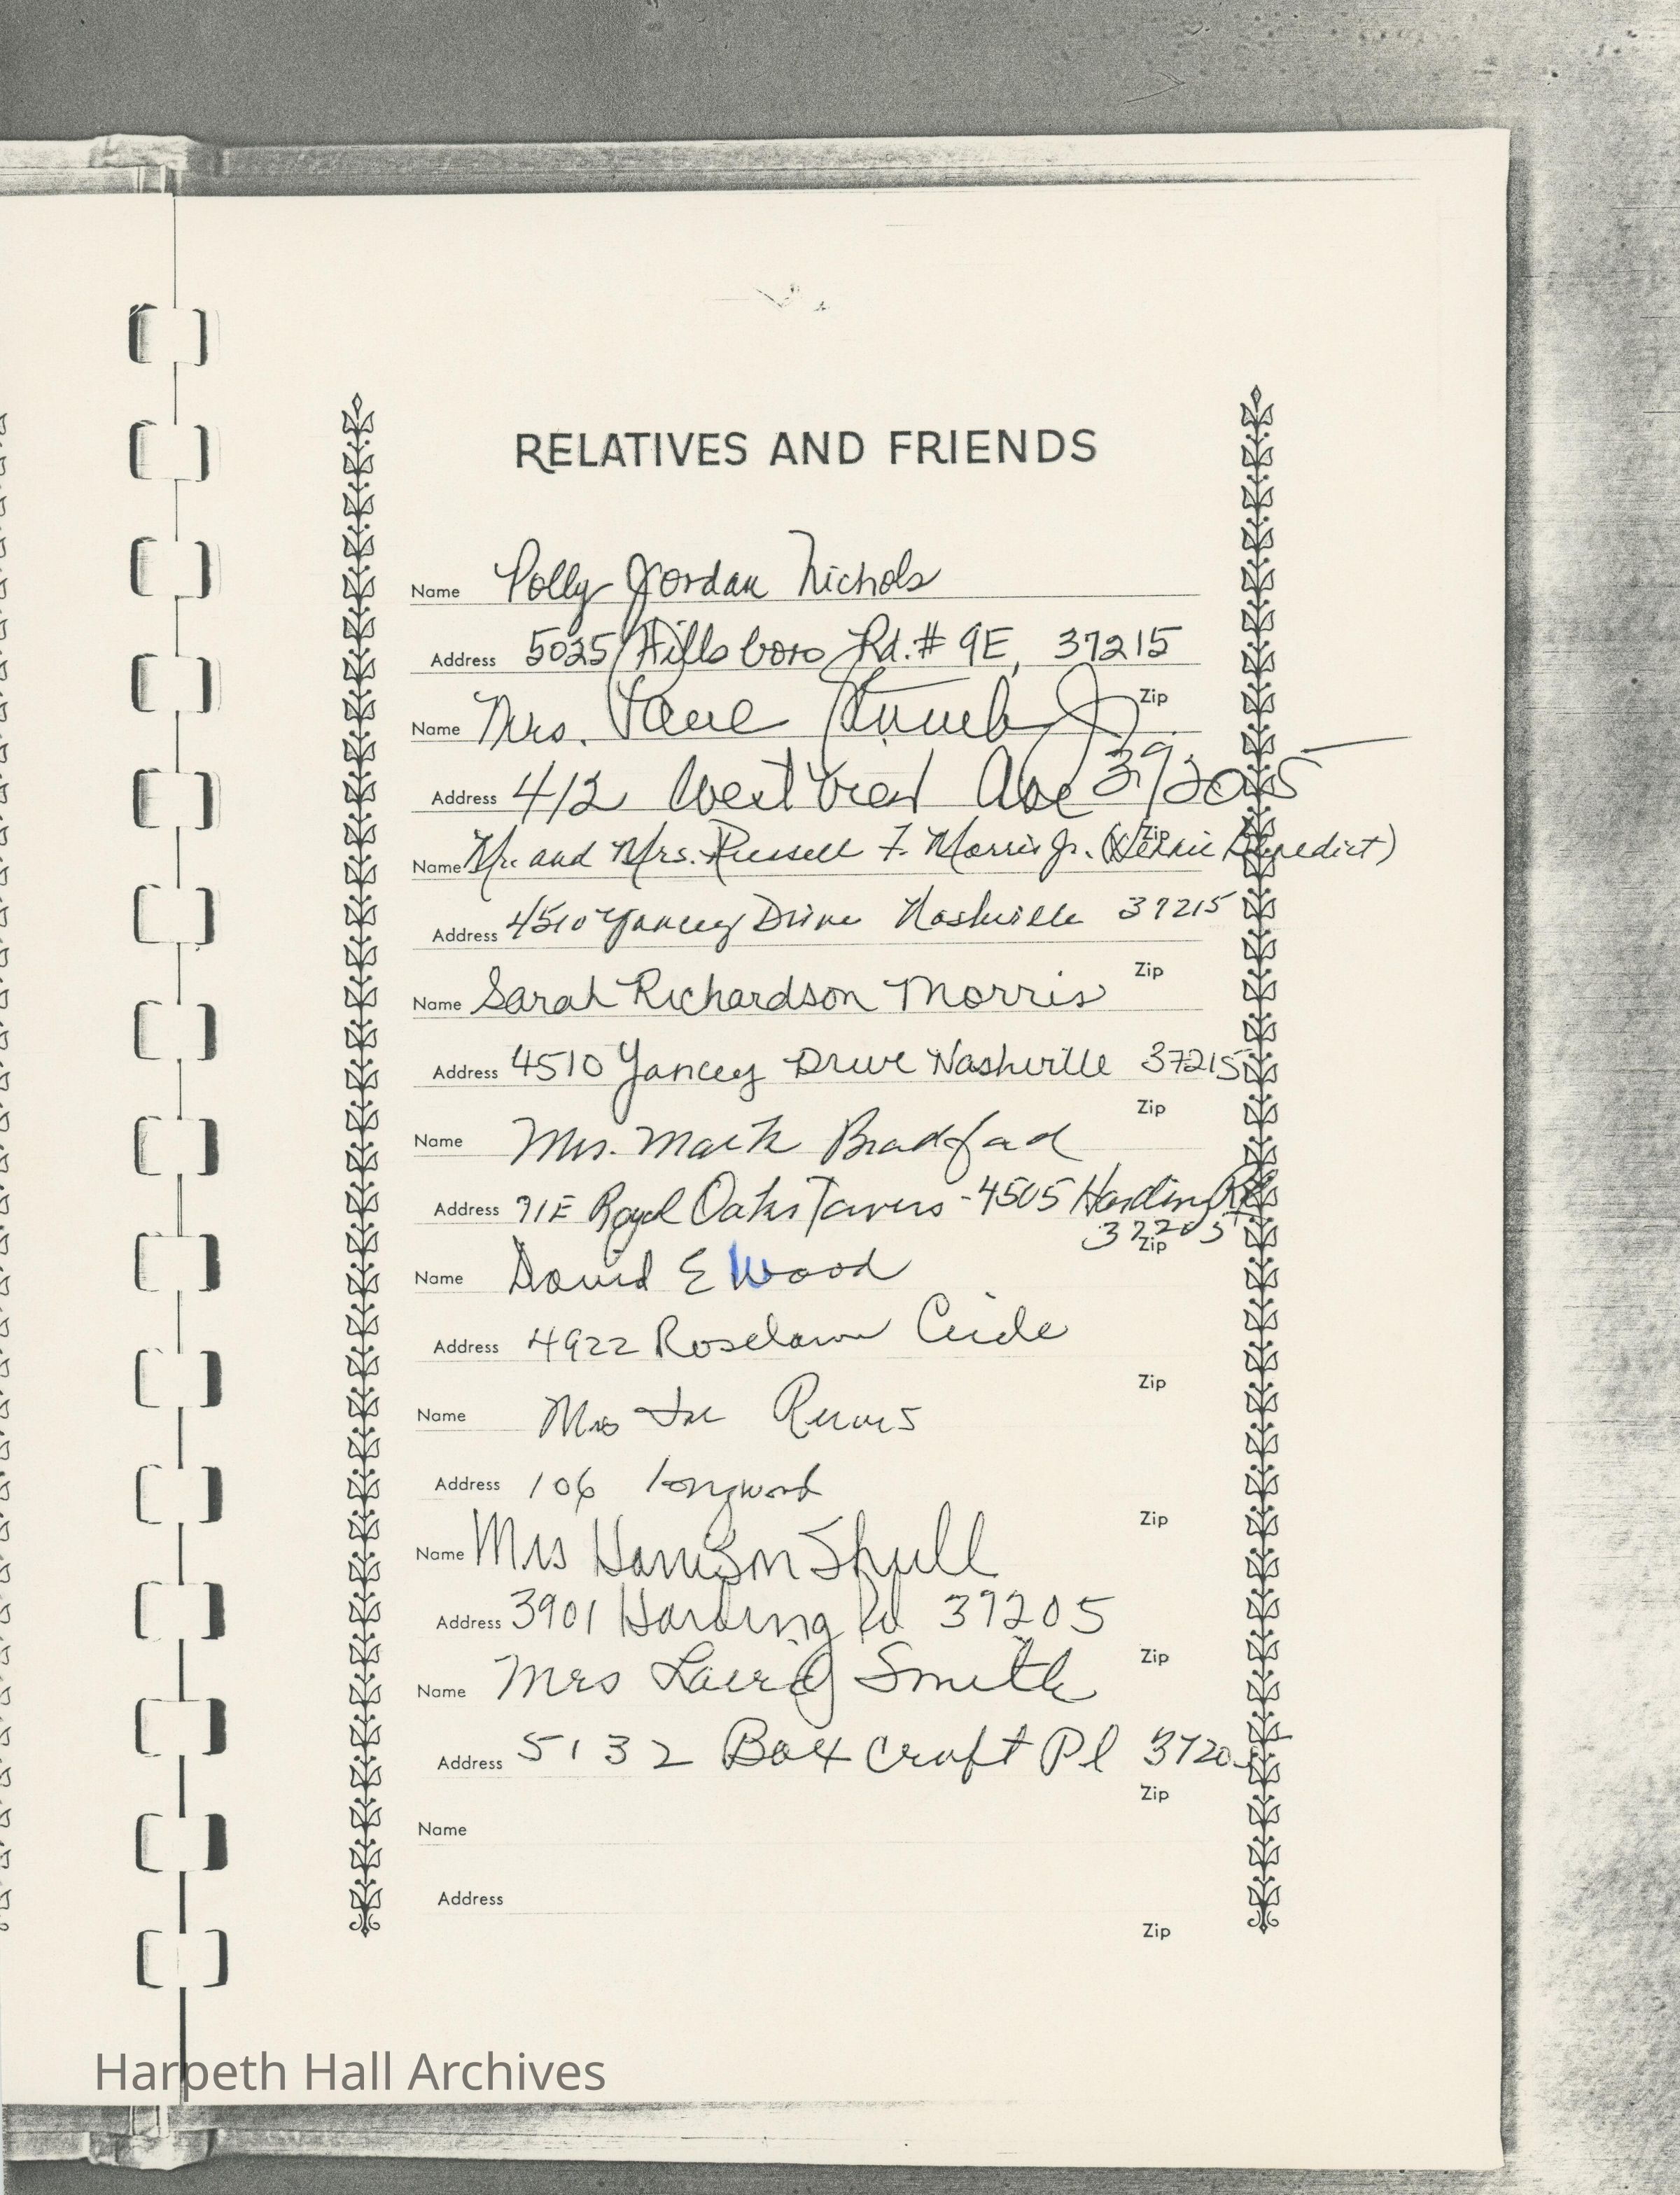 RELATIVES AND FRIENDS
Name Polly Jordan Nichols
Address 5025 Hillsboro Rd. # 9E, 37215
Zip
Name Mrs.
Address 412 West view Ave 37205
Zip
Name Mr. and Mrs. Russell F. Morris Jr. ( Benedict)
Address 4510 Yancey Drive Nashville 37215
Zip
Name Sarah Richardson Morris
Address 4510 Yancey Drive Nashville 37215
Zip
Name Mrs. Mark Bradford
Address 91E Royal Oaks Towers - 4505 Harding Rd
37205
Zip
Name David E Wood
Address 4922 Roselawn Circle
Zip
Name Mrs Reeves
Address 106 Longwood
Zip
Name Mrs Harrison Shull
Address 3901 Harding Rd 37205
Zip
Name Mrs Laird Smith
Address 5132 Boxcroft Pl 37205
Zip
Name
Address
Zip
Harpeth Hall Archives